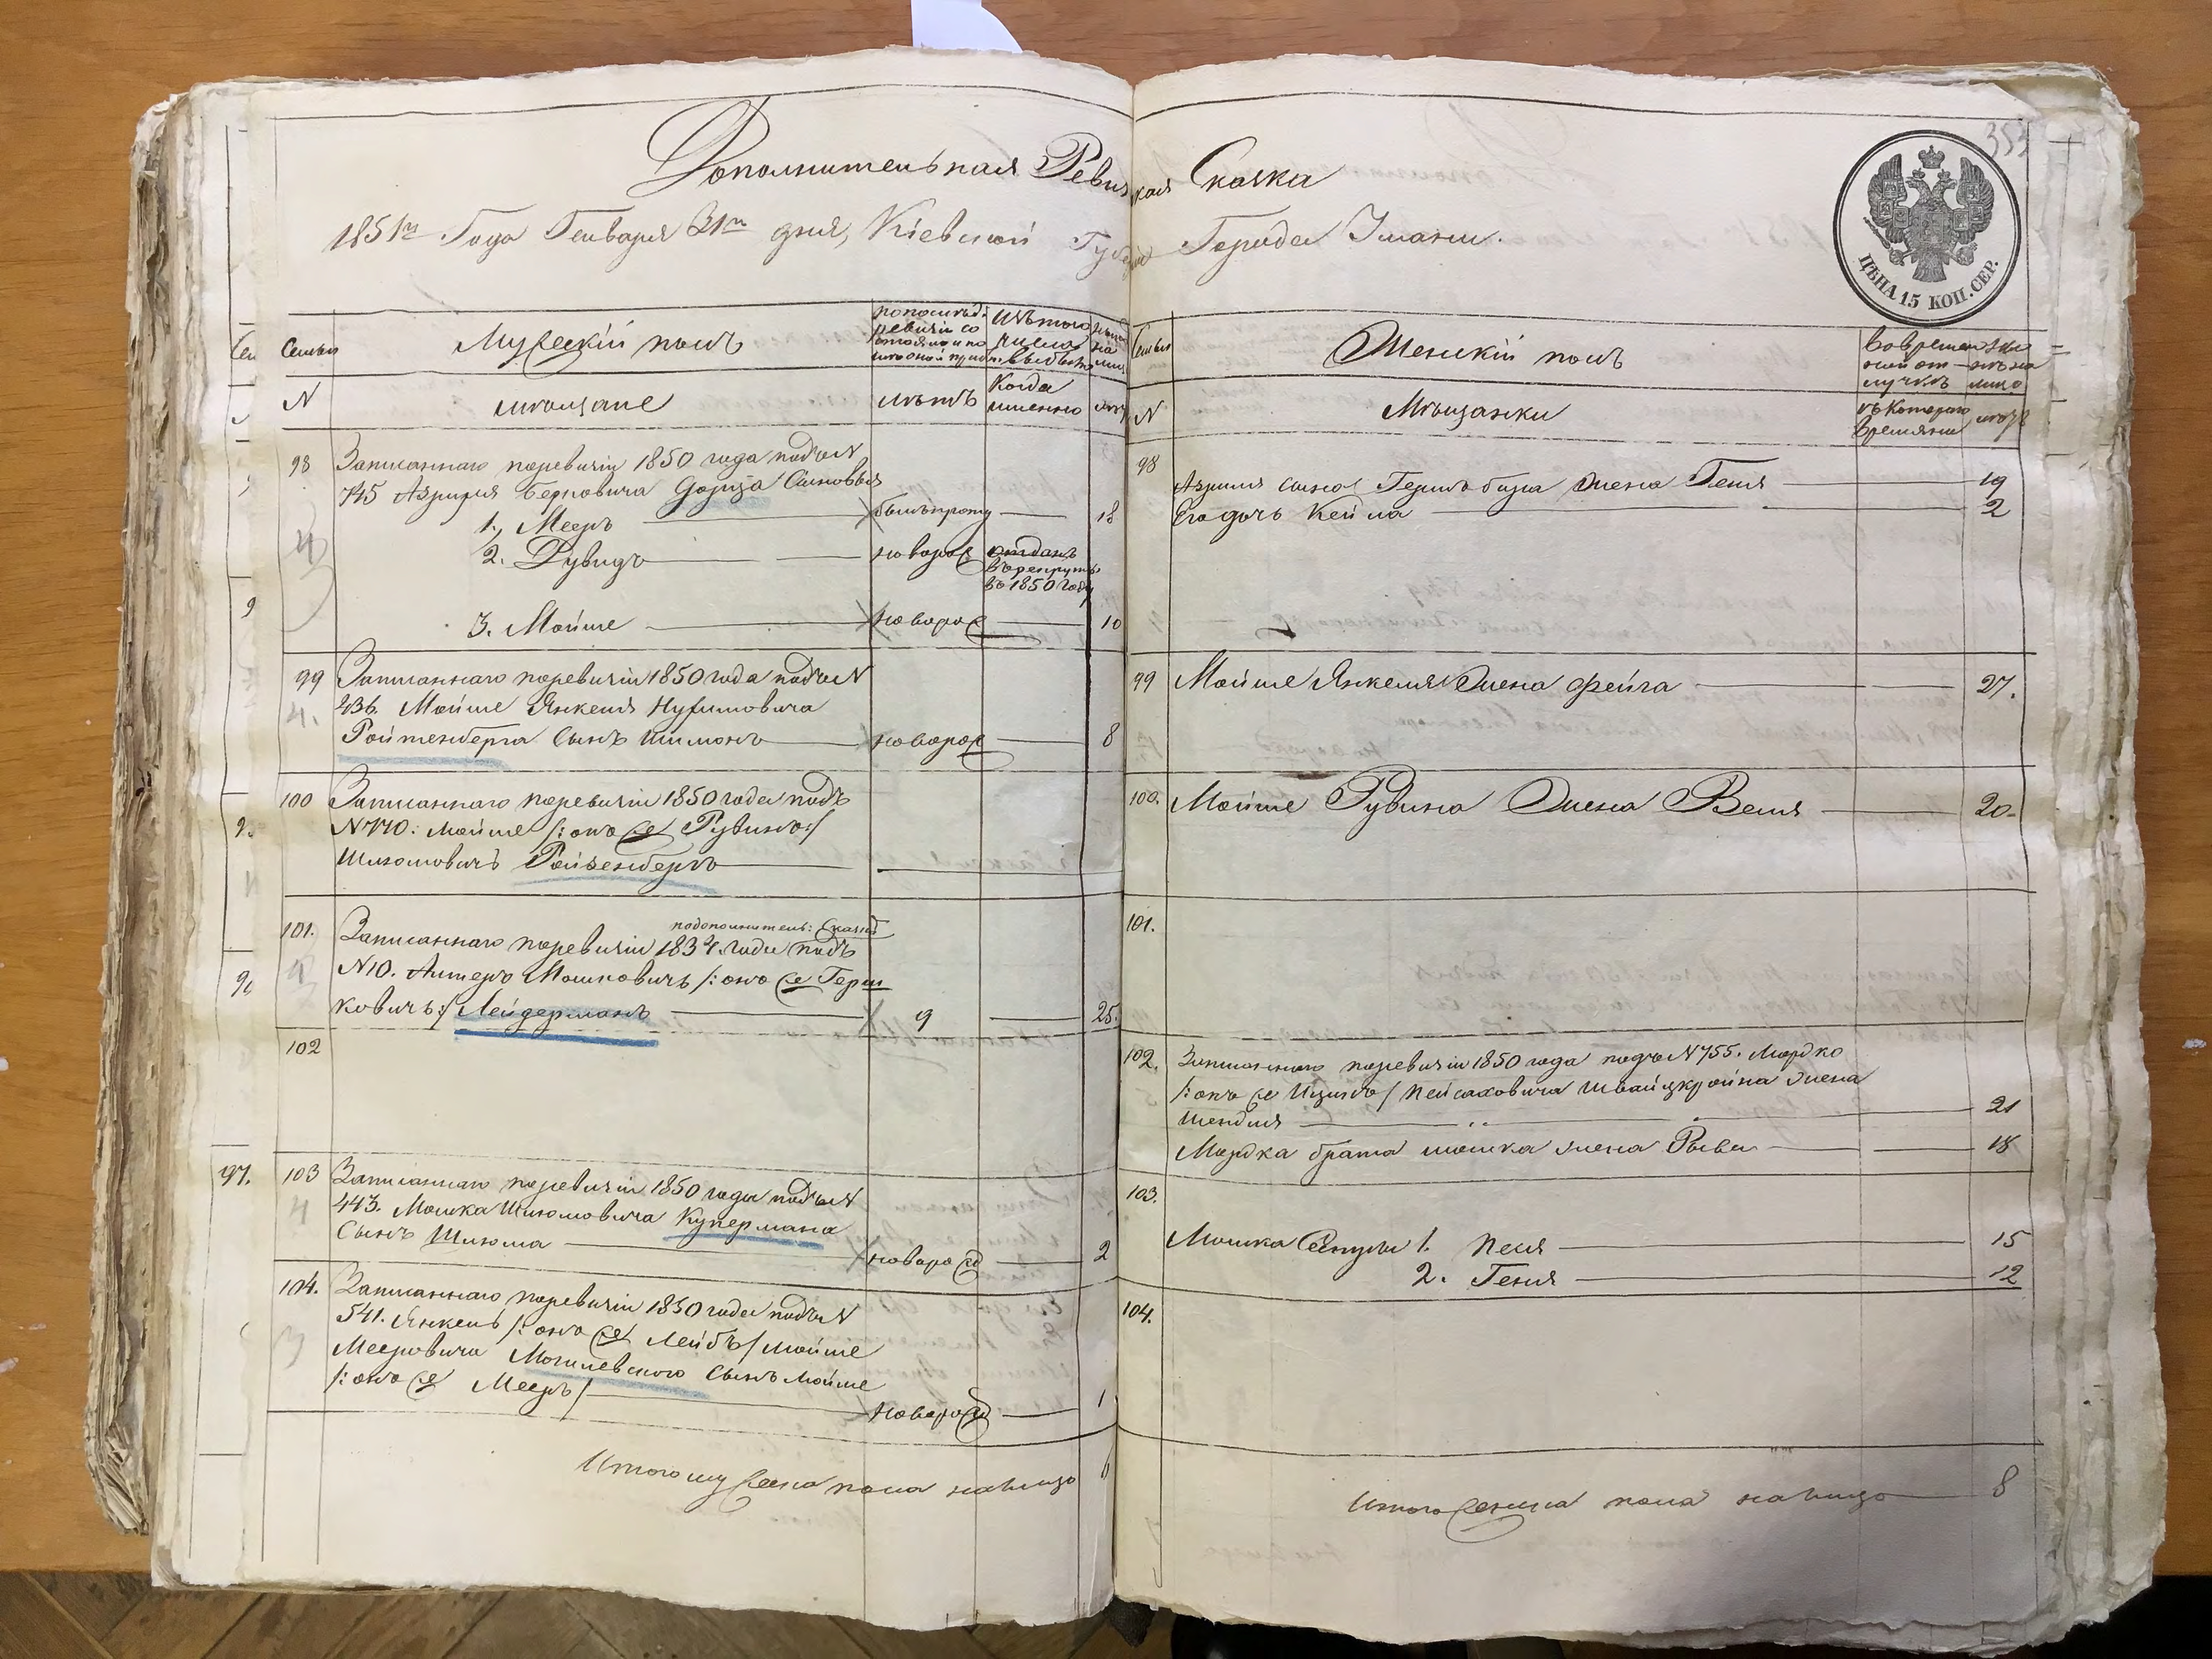 353
Дополнительная Ревизкая Сказка
1851го Года Генваря 31го дня, Кіевской Губерніи Города Умани.
ЦѢНА 15 КОП. СЕР.
Семьи
Мужескій полъ
по послѣд: ревизіи со
Изъ того числа выбыло
Семьи
Женскій полъ
Во временной отлучкѣ
Нынѣ на лицо
N
мѣщане
лѣтъ
Когда именно
лѣтъ
N
Мѣщанки
съ Котораго Времяни
лѣтъ
98
Записаннаго поревизіи 1850 года подъ N
745 Азриля Берковича Сыновья
1, Мееръ былъ проп 18
2. Дувидъ новорож отданъ въ рекруты въ 1850 году
3. Мойше новорож 10
98
Азриля сына жена Геня 19
Егодочь Кейла 2
99
Записаннаго поревизіи 1850 года подъ N
436. Мойше Янкеля Нухимовича
Ройтенберга Сынъ Шимонъ новорож 8
99
Мойше Янкеля Жена Фейга 27.
100
Записаннаго поревизіи 1850 года подъ
N770: Мойше /: онъ же Рувинъ:/
Шлюмовичъ Ройзенбергъ
100.
Мойше Рувина Жена Веля 20
101.
подополнитель: Сказкѣ
Записаннаго поревизіи 1834. года подъ
N10. Антеръ Мошковичъ /: онъ же Герш
ковичъ:/ Лейдерманъ 9 25.
101.
102
102.
Записаннаго поревизіи 1850 года подъ N755. Мордко
/: онъ же Ицикъ/ Пейсаховича Швайцкройна жена
Шендля 21
Мордка брата мошка жена Рыва 18
97.
103
Записаннаго поревизіи 1850 года подъ N
443. Мошка Шлюмовича Купермана
Сынъ Шлюма новорожд 2
103.
Мошка 1. Песя 15
2. Геня 12
104.
Записаннаго поревизіи 1850 года подъ N
541. Янкель /: онъ же Лейбъ/ Мойше
Мееровича Могилевского Сынъ Мойше
/: онъ же Мееръ/ новорожд 1
104.
Итого мужеска пола налицо 6
Итого женска пола налицо 8